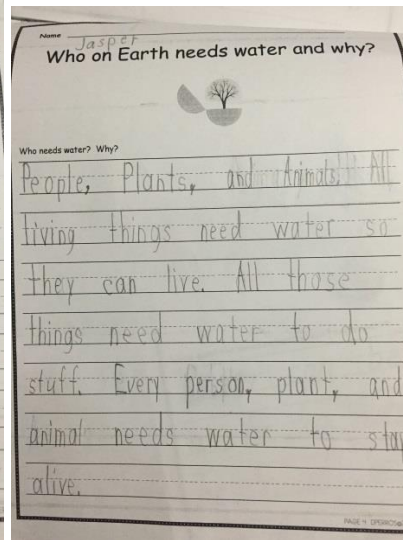 Name Jasper
Who on Earth needs water and why?
Who needs water? Why?
People, Plants, and Animals. All
living things need water so
they can live. All those
things need water to do
stuff. Every person, plant, and
animal needs water to stay
alive.
PAGE 4